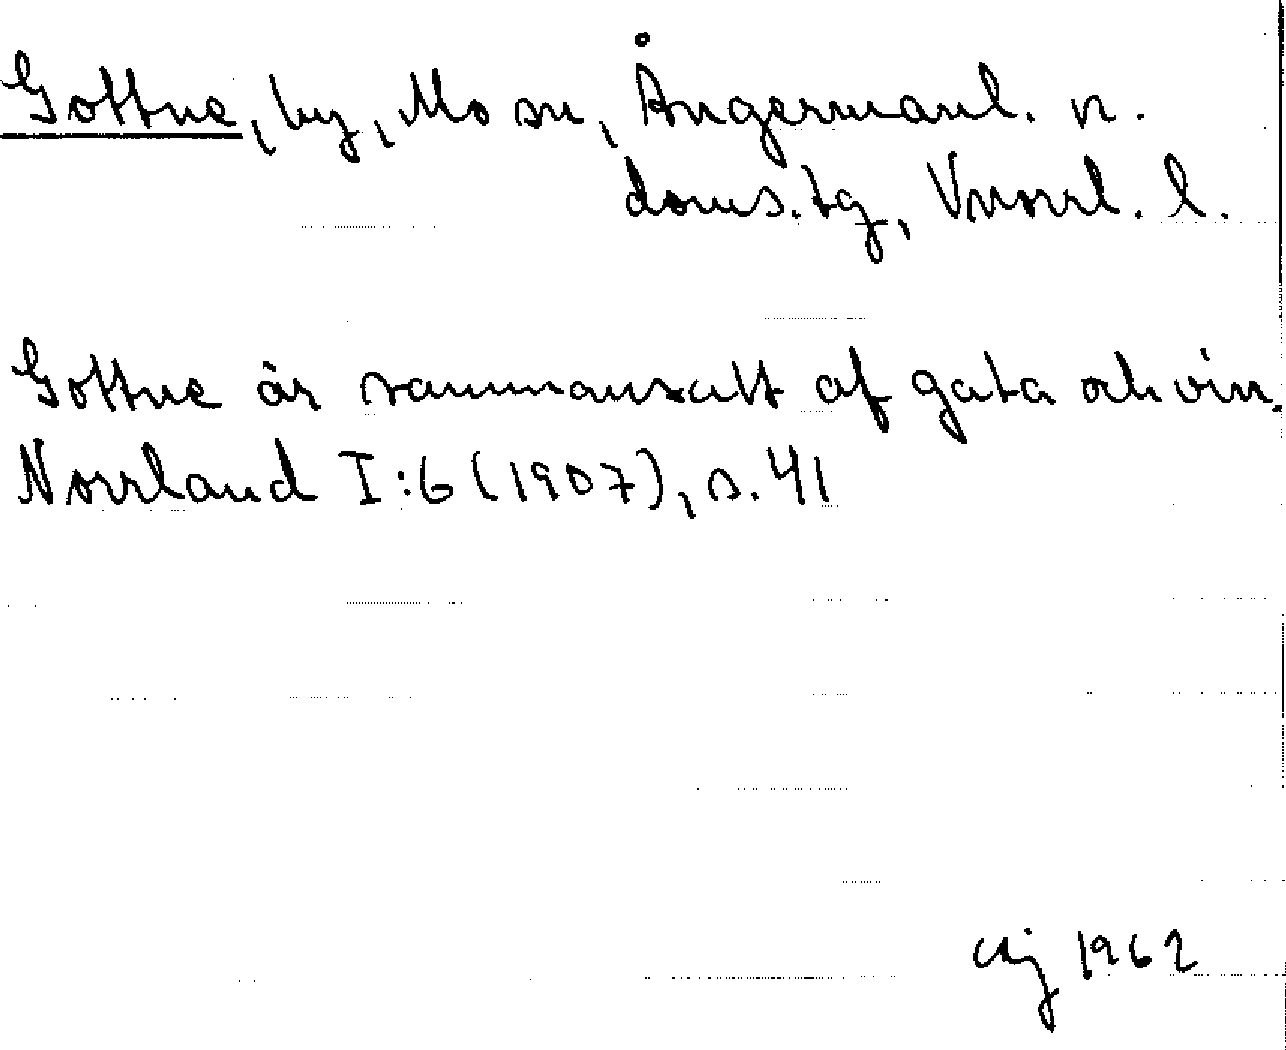 Gottne, by, Mo sn, Ångermanl. n.
doms.tg, Vnorrl. l.
Gottne är sammansatt af gata och vin.
Norrland I:6 (1907), s. 41
1962